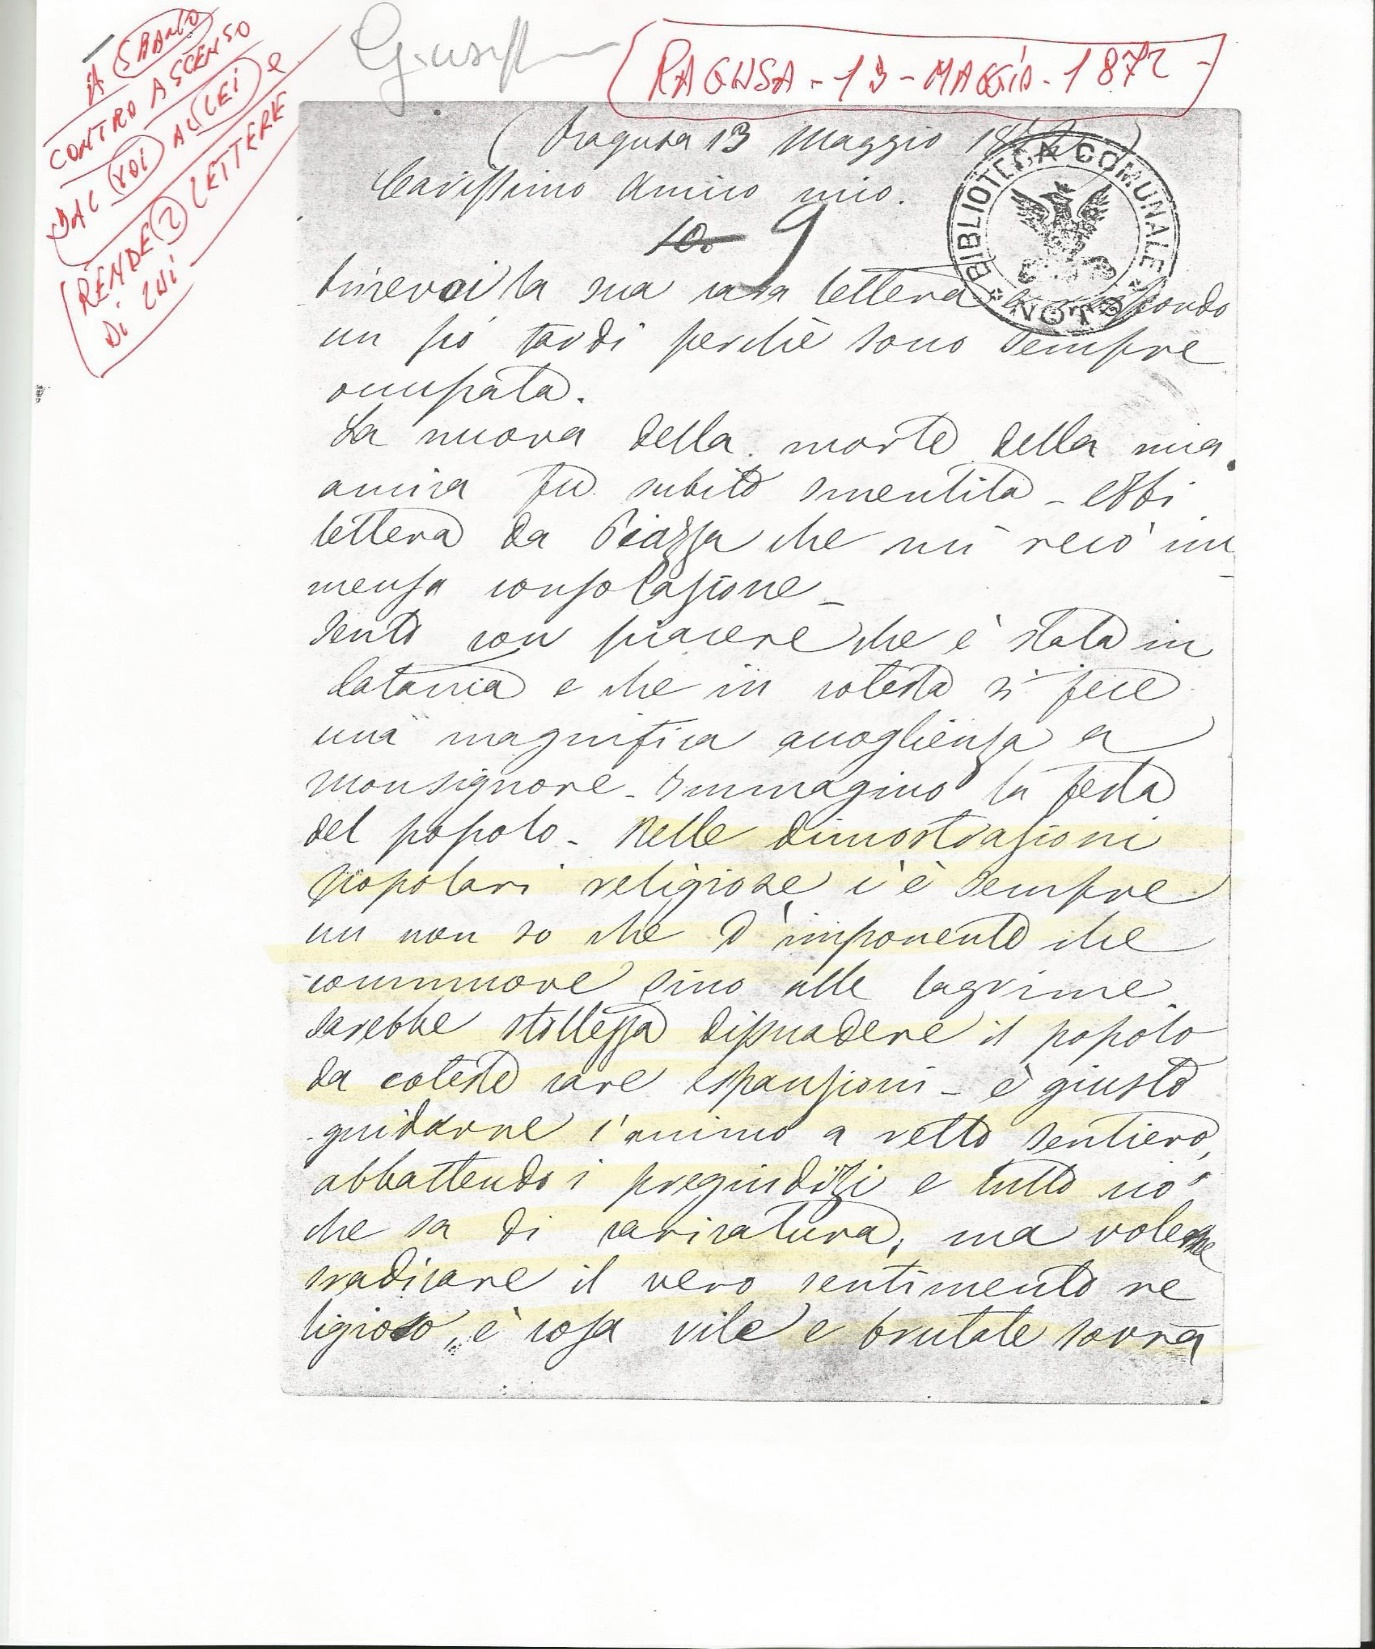 A SBALZO
CONTRO ASCENSO
DAL VOI AL LEI e
RENDE 2 LETTERE
Di LUI
Giuseppe
RAGUSA - 13 - MAGGIO - 1872 -
(Ragusa 13 Maggio 1872)
Carissimo Amico mio.
BIBLIOTECA COMUNALE
* NOTO *
10. 9
Ricevei la sua cara lettera e rispondo
un pò tardi perchè sono sempre
occupata.
La nuova della morte della mia
amica fu subito smentita - ebbi
lettera da Piazza che mi recò im
mensa consolazione -
Sento con piacere che è stata in
Catania e che in cotesta si fece
una magnifica accoglienza a
Monsignore - Immagino la festa
del popolo - Nelle dimostrazioni
popolari religiose c'è sempre
un non so che d'imponente che
commuove sino alle lagrime.
Sarebbe stoltezza dissuadere il popolo
da coteste care espansioni - è giusto
guidarne l'animo a retto sentiero,
abbattendo i pregiudizi e tutto ciò
che sa di caricatura, ma volerne
sradicare il vero sentimento re
ligioso, è cosa vile e brutale sovra